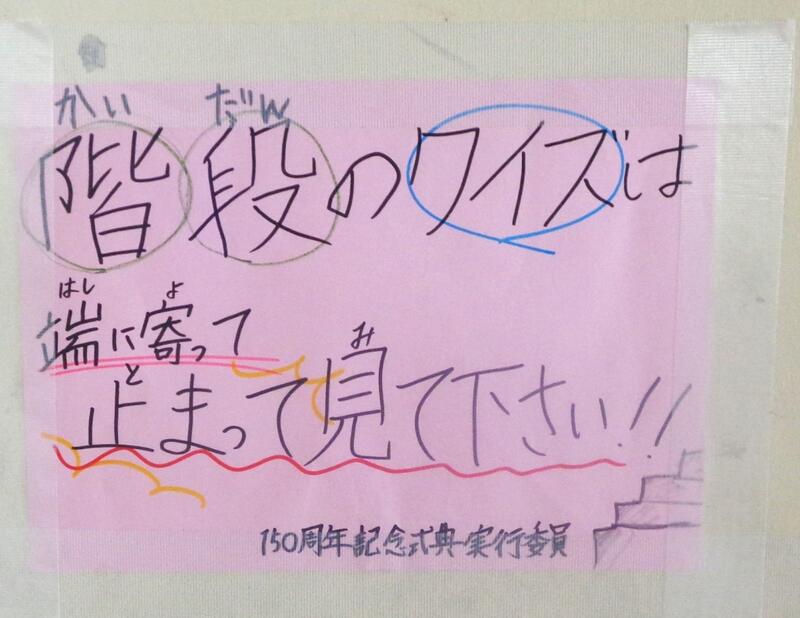 かい だん
階段のクイズは
はし よ
端に寄って
と み
止まって見て下さい!!
150周年記念式典実行委員